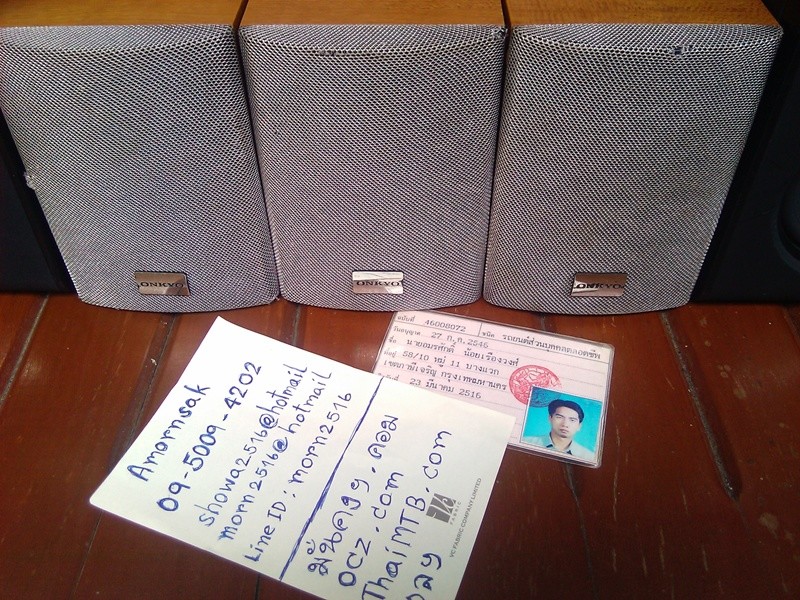 ONKYO
ONKYO
ONKYO
ฉบับที่ 46008072 ชนิด รถยนต์ส่วนบุคคลตลอดชีพ
วันอนุญาต 27 ก.ค.2546
ชื่อ นายอมรศักดิ์ น้อยเรืองวงศ์
ที่อยู่ 58/10 หมู่ 11 บางแวก
เขตภาษีเจริญ กรุงเทพมหานคร
23 มีนาคม 2516
Amornsak
09-5009-4202
showa2516@hotmail
morn2516@hotmail
Line ID : morn2516
มั่นคงๆ.คอม
OCZ.com
ThaiMTB.com
VC FABRIC COMPANY LIMITED